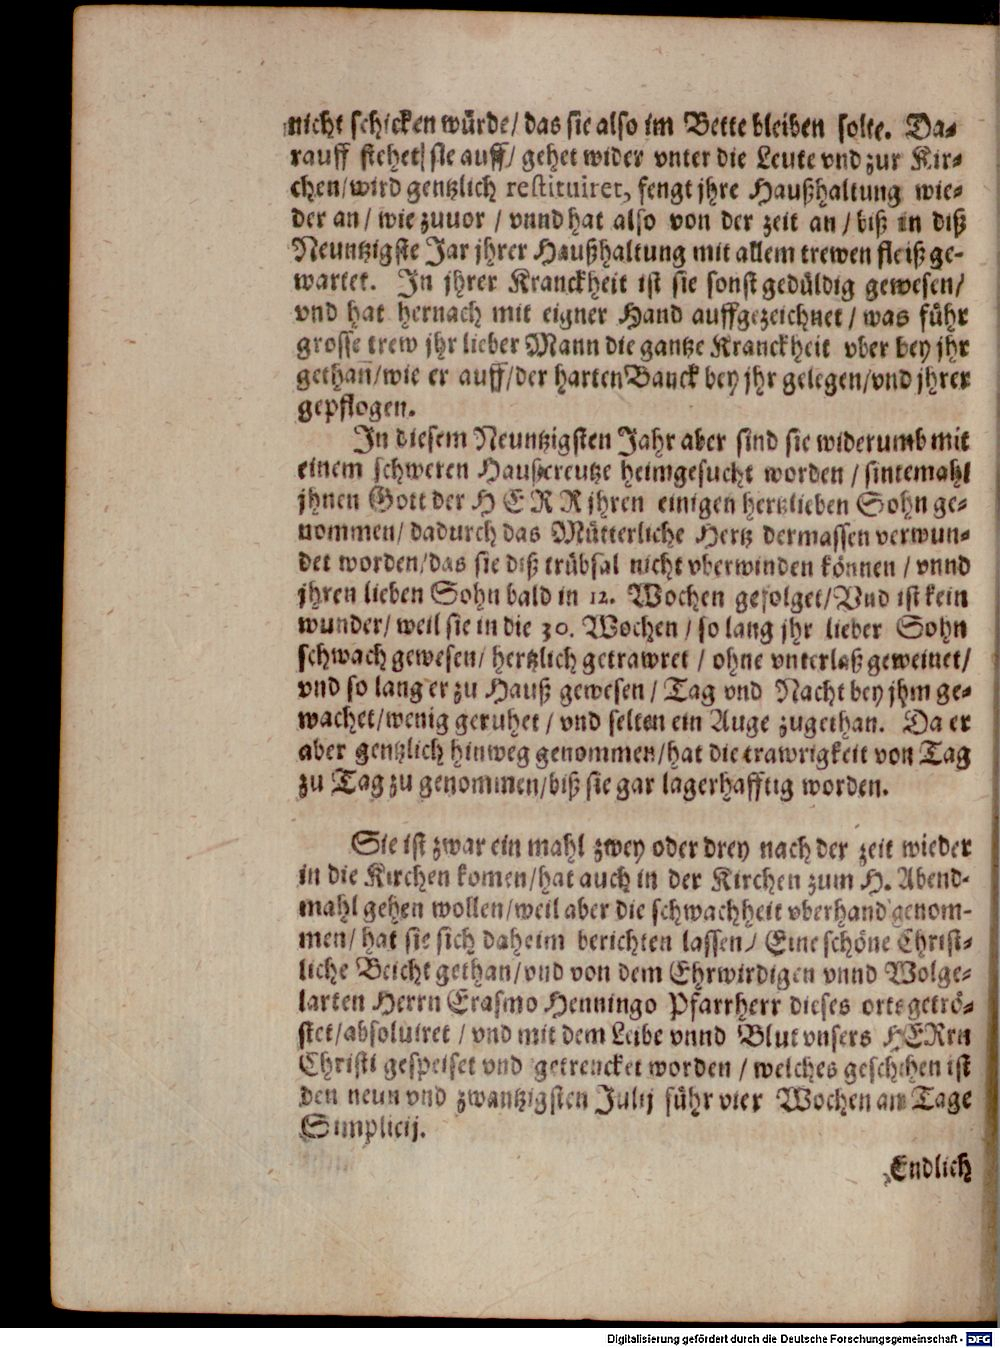 nicht schicken würde/ das sie also im Bette bleiben solte. Da-
rauff stehet sie auff/ gehet wider vnter die Leute vnd zur Kir-
chen/ wird gentzlich restituiret, fengt jhre Haußhaltung wie-
der an/ wie zuuor / vnnd hat also von der zeit an / biß in diß
Neuntzigste Jar jhrer Haußhaltung mit allem trewen fleiß ge-
wartet. In jhrer Kranckheit ist sie sonst gedüldig gewesen/
vnd hat hernach mit eigner Hand auffgezeichnet / was führ
grosse trew jhr lieber Mann die gantze Kranckheit vber bey jhr
gethan/ wie er auff/ der harten Banck bey jhr gelegen/ vnd jhrer
gepflogen.
In diesem Neuntzigsten Jahr aber sind sie widerumb mit
einem schweren Haußcreutze heimgesucht worden / sintemahl
jhnen Gott der HERR jhren einigen hertzlieben Sohn ge-
nommen/ dadurch das Mütterliche Hertz dermassen verwun-
det worden/ das sie diß trübsal nicht vberwinden können / vnnd
jhren lieben Sohn bald in 12. Wochen gefolget/ Vnd ist kein
wunder/ weil sie in die 30. Wochen / so lang jhr lieber Sohn
schwach gewesen/ hertzlich getrawret / ohne vnterlaß geweinet/
vnd so lang er zu Hauß gewesen / Tag vnd Nacht bey jhm ge-
wachet/ wenig geruhet / vnd selten ein Auge zugethan. Da er
aber gentzlich hinweg genommen/ hat die trawrigkeit von Tag
zu Tag zu genommen/ biß sie gar lagerhafftig worden.
Sie ist zwar ein mahl zwey oder drey nach der zeit wieder
in die Kirchen komen/ hat auch in der Kirchen zum H. Abend-
mahl gehen wollen/ weil aber die schwachheit vberhand genom-
men/ hat sie sich daheim berichten lassen/ Eine schöne Christ-
liche Beicht gethan/ vnd von dem Ehrwirdigen vnnd Wolge-
larten Herrn Erasmo Henningo Pfarrherr dieses orts getrö-
stet/ absoluiret / vnd mit dem Leibe vnnd Blut vnsers HERrn
Christi gespeiset vnd getrencket worden / welches geschehen ist
den neun vnd zwantzigsten Julij führ vier Wochen am Tage
Simplicij.
Endlich
Digitalisierung gefördert durch die Deutsche Forschungsgemeinschaft - DFG